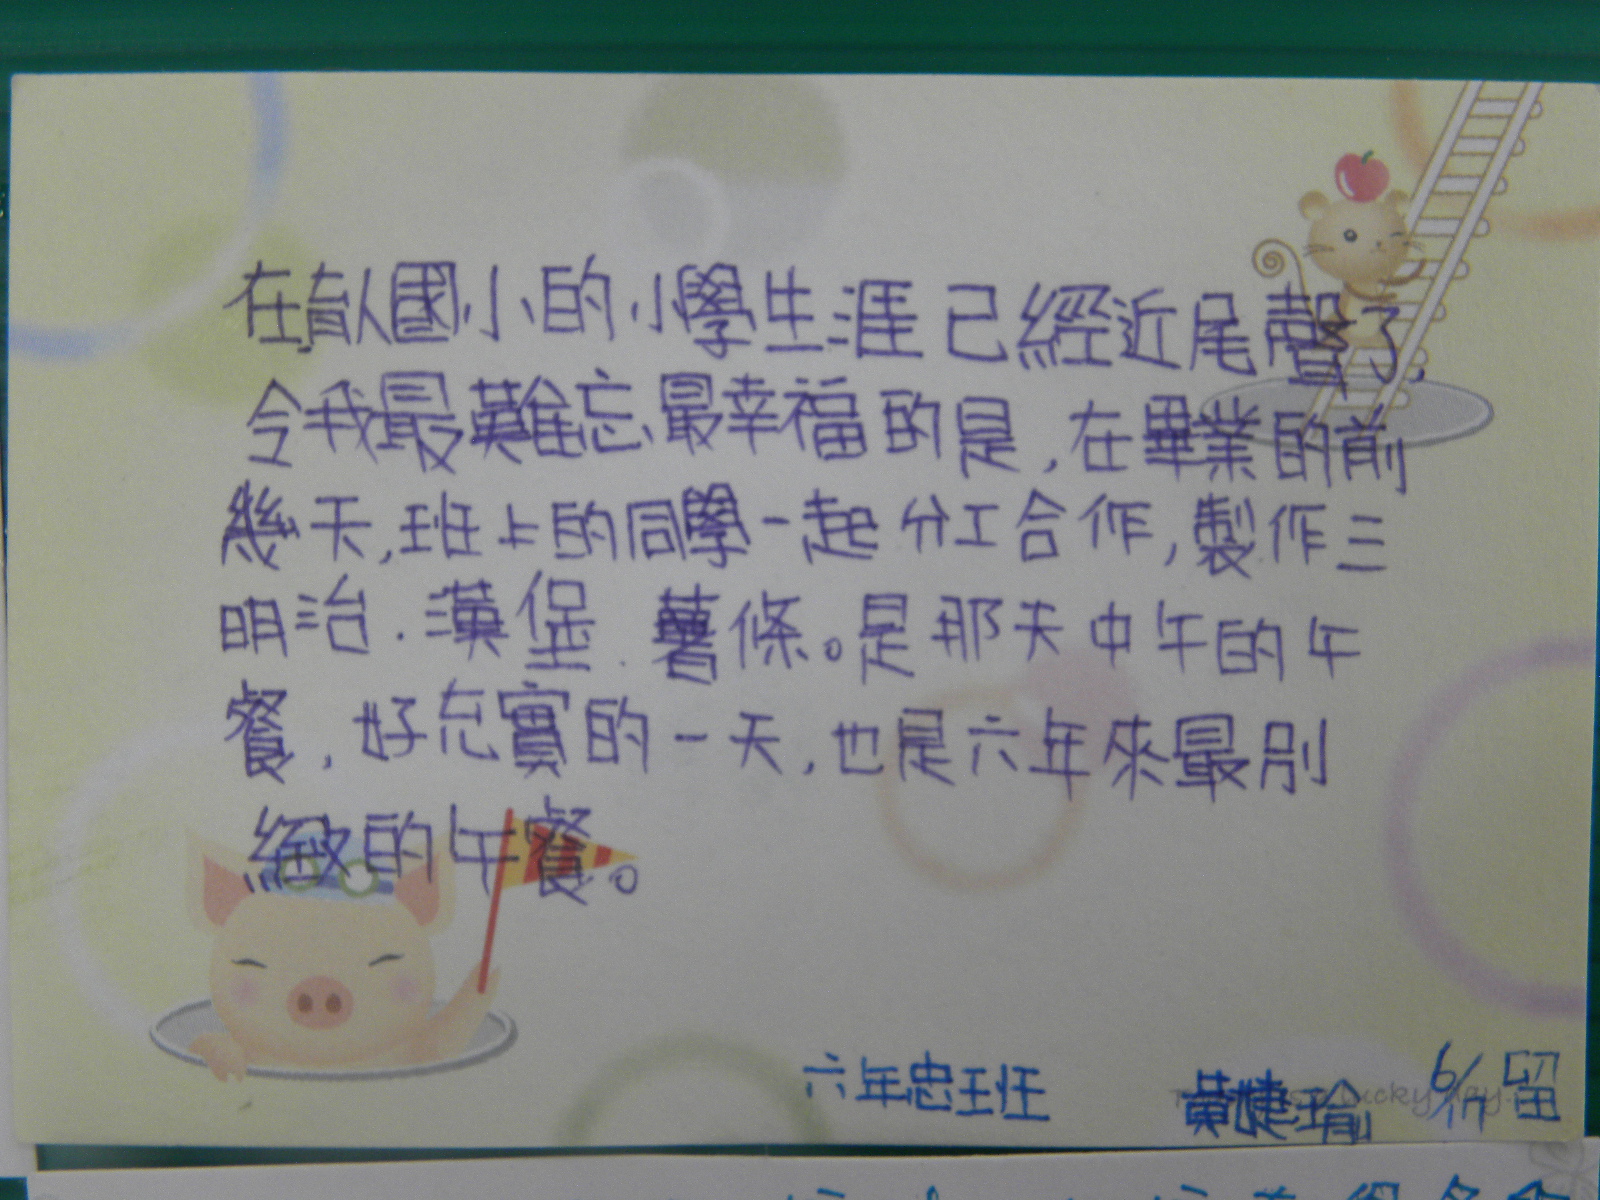 在育人國小的小學生涯已經近尾聲了,
令我最難忘、最幸福的是,在畢業的前
幾天,班上的同學一起分工合作,製作三
明治.漢堡.薯條。是那天中午的午
餐,好充實的一天,也是六年來最別
緻的午餐。
六年忠班 黃婕瑜 6/17 留